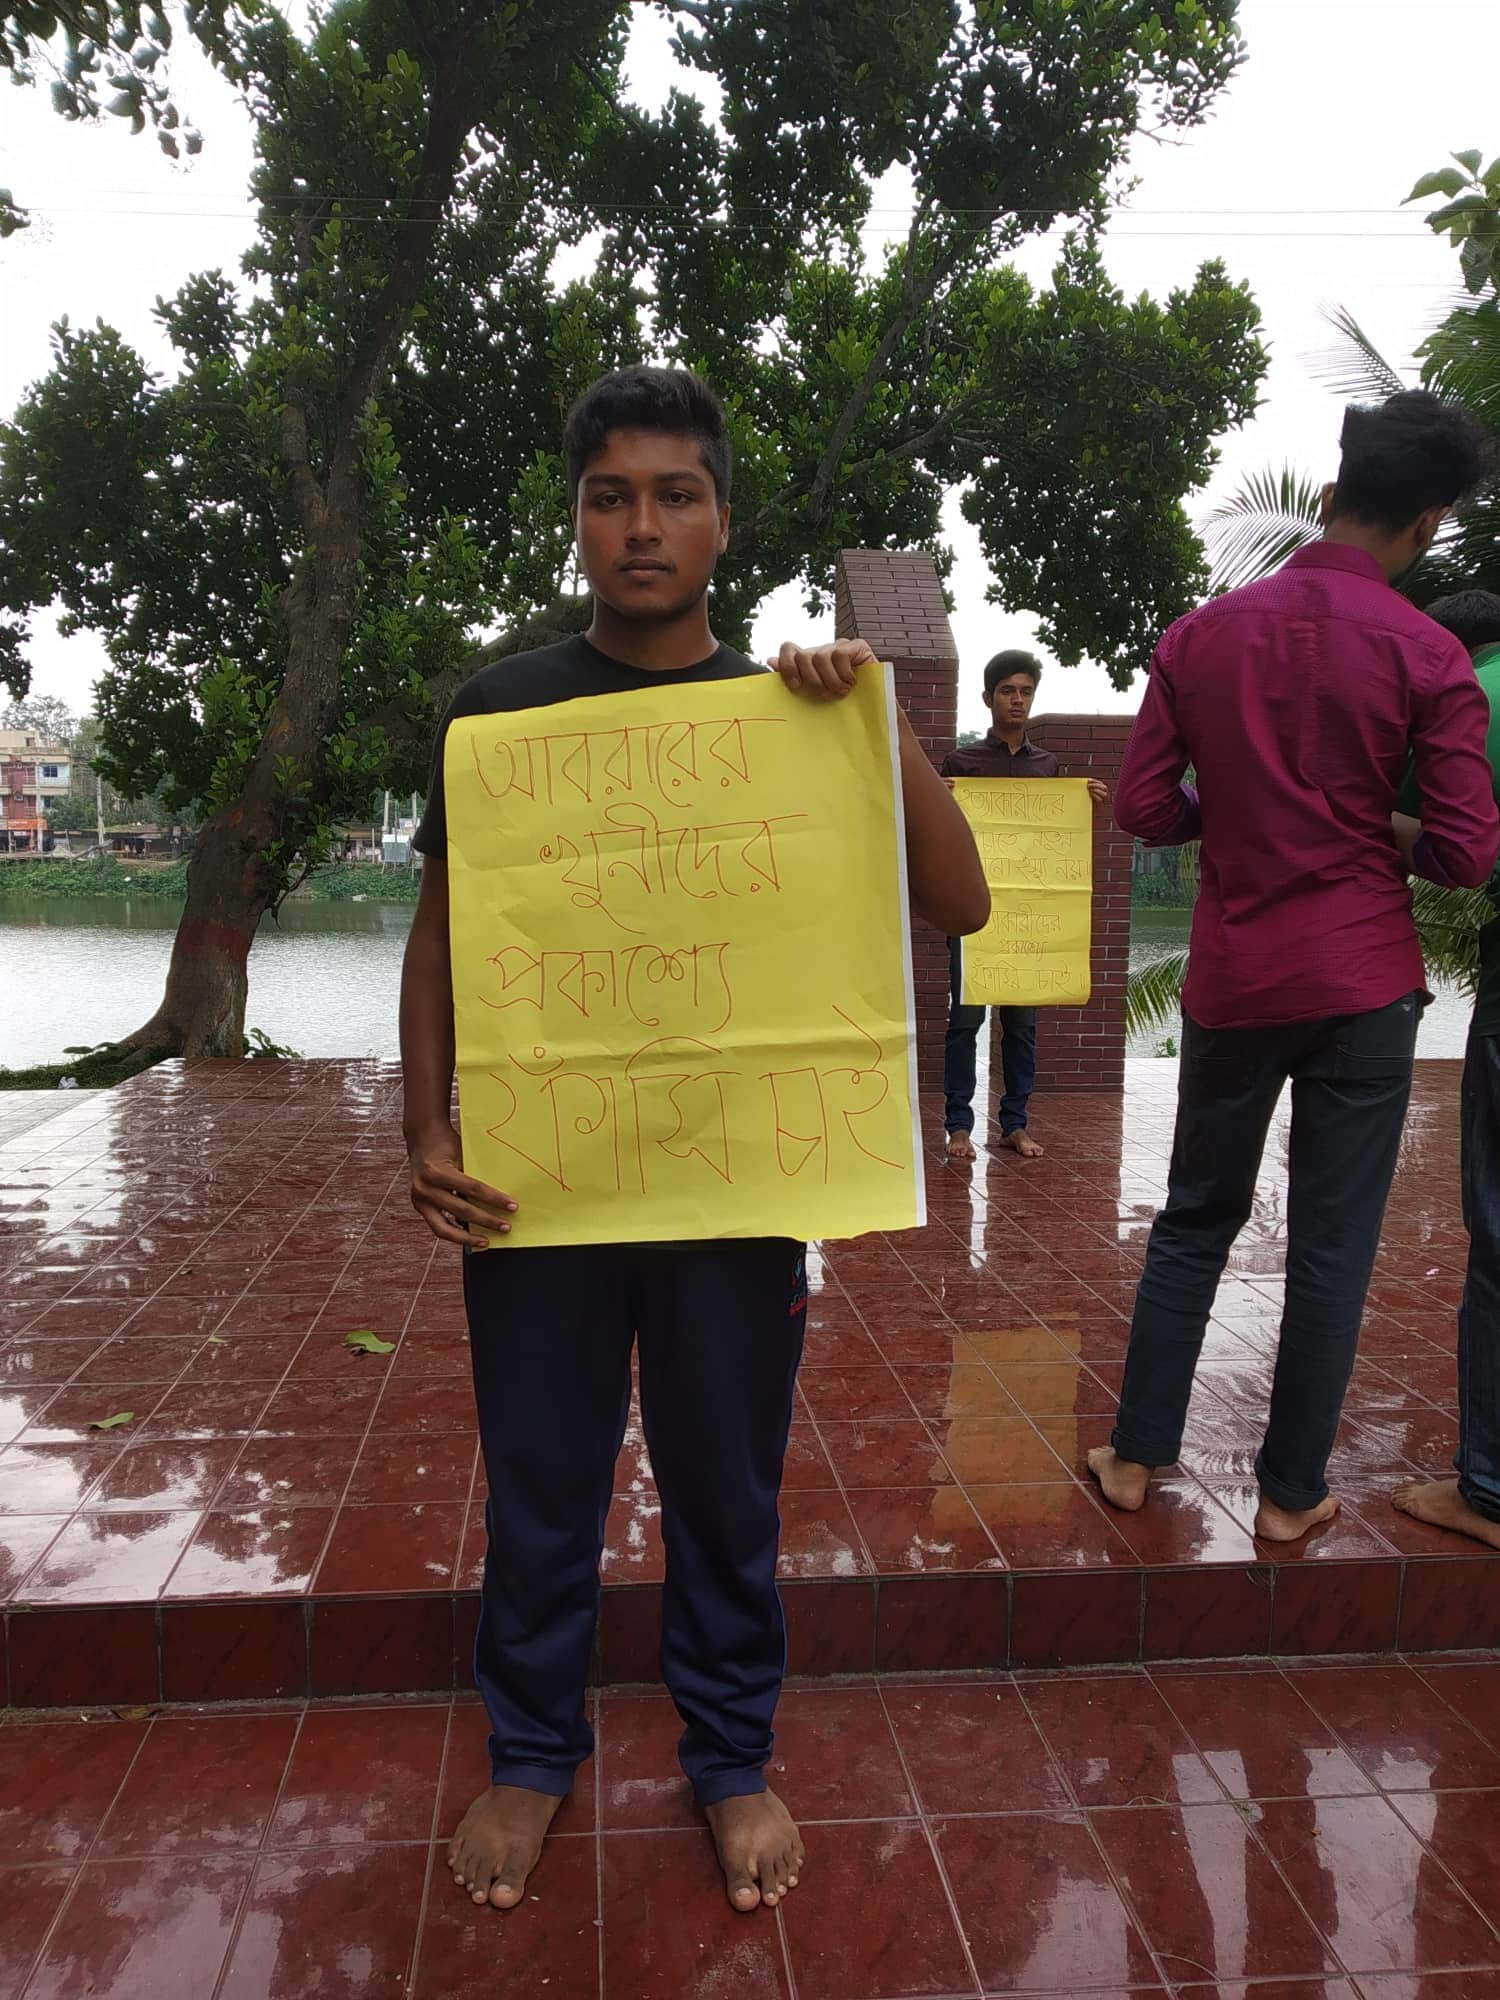 আবরারের
খুনীদের
প্রকাশ্যে
ফাঁসি চাই
হত্যাকারীদের
নতুন
নয়।
হত্যাকারীদের
প্রকাশ্যে
ফাঁসি চাই।